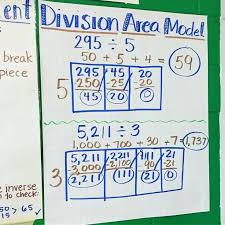 ent
Division Area Model
295 ÷ 5
break
piece
50 + 5 + 4 = 59
5
295 45 20
-250 -25 -20
45 20 0
5,211 ÷ 3
1,000 + 700 + 30 + 7 = 1,737
3
5,211 2,211 111 21
3,000 -2,100 90 21
2,211 111 21 0
inverse
to check:
50 > 65 ✓
15